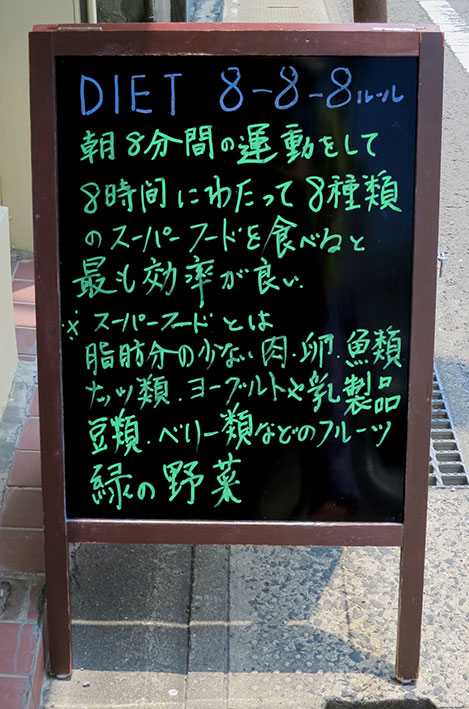 DIET 8-8-8ルール
朝8分間の運動をして
8時間にわたって8種類
のスーパーフードを食べると
最も効率が良い.
※スーパーフードとは
脂肪分の少ない肉.卵.魚類
ナッツ類.ヨーグルトや乳製品
豆類.ベリー類などのフルーツ
緑の野菜